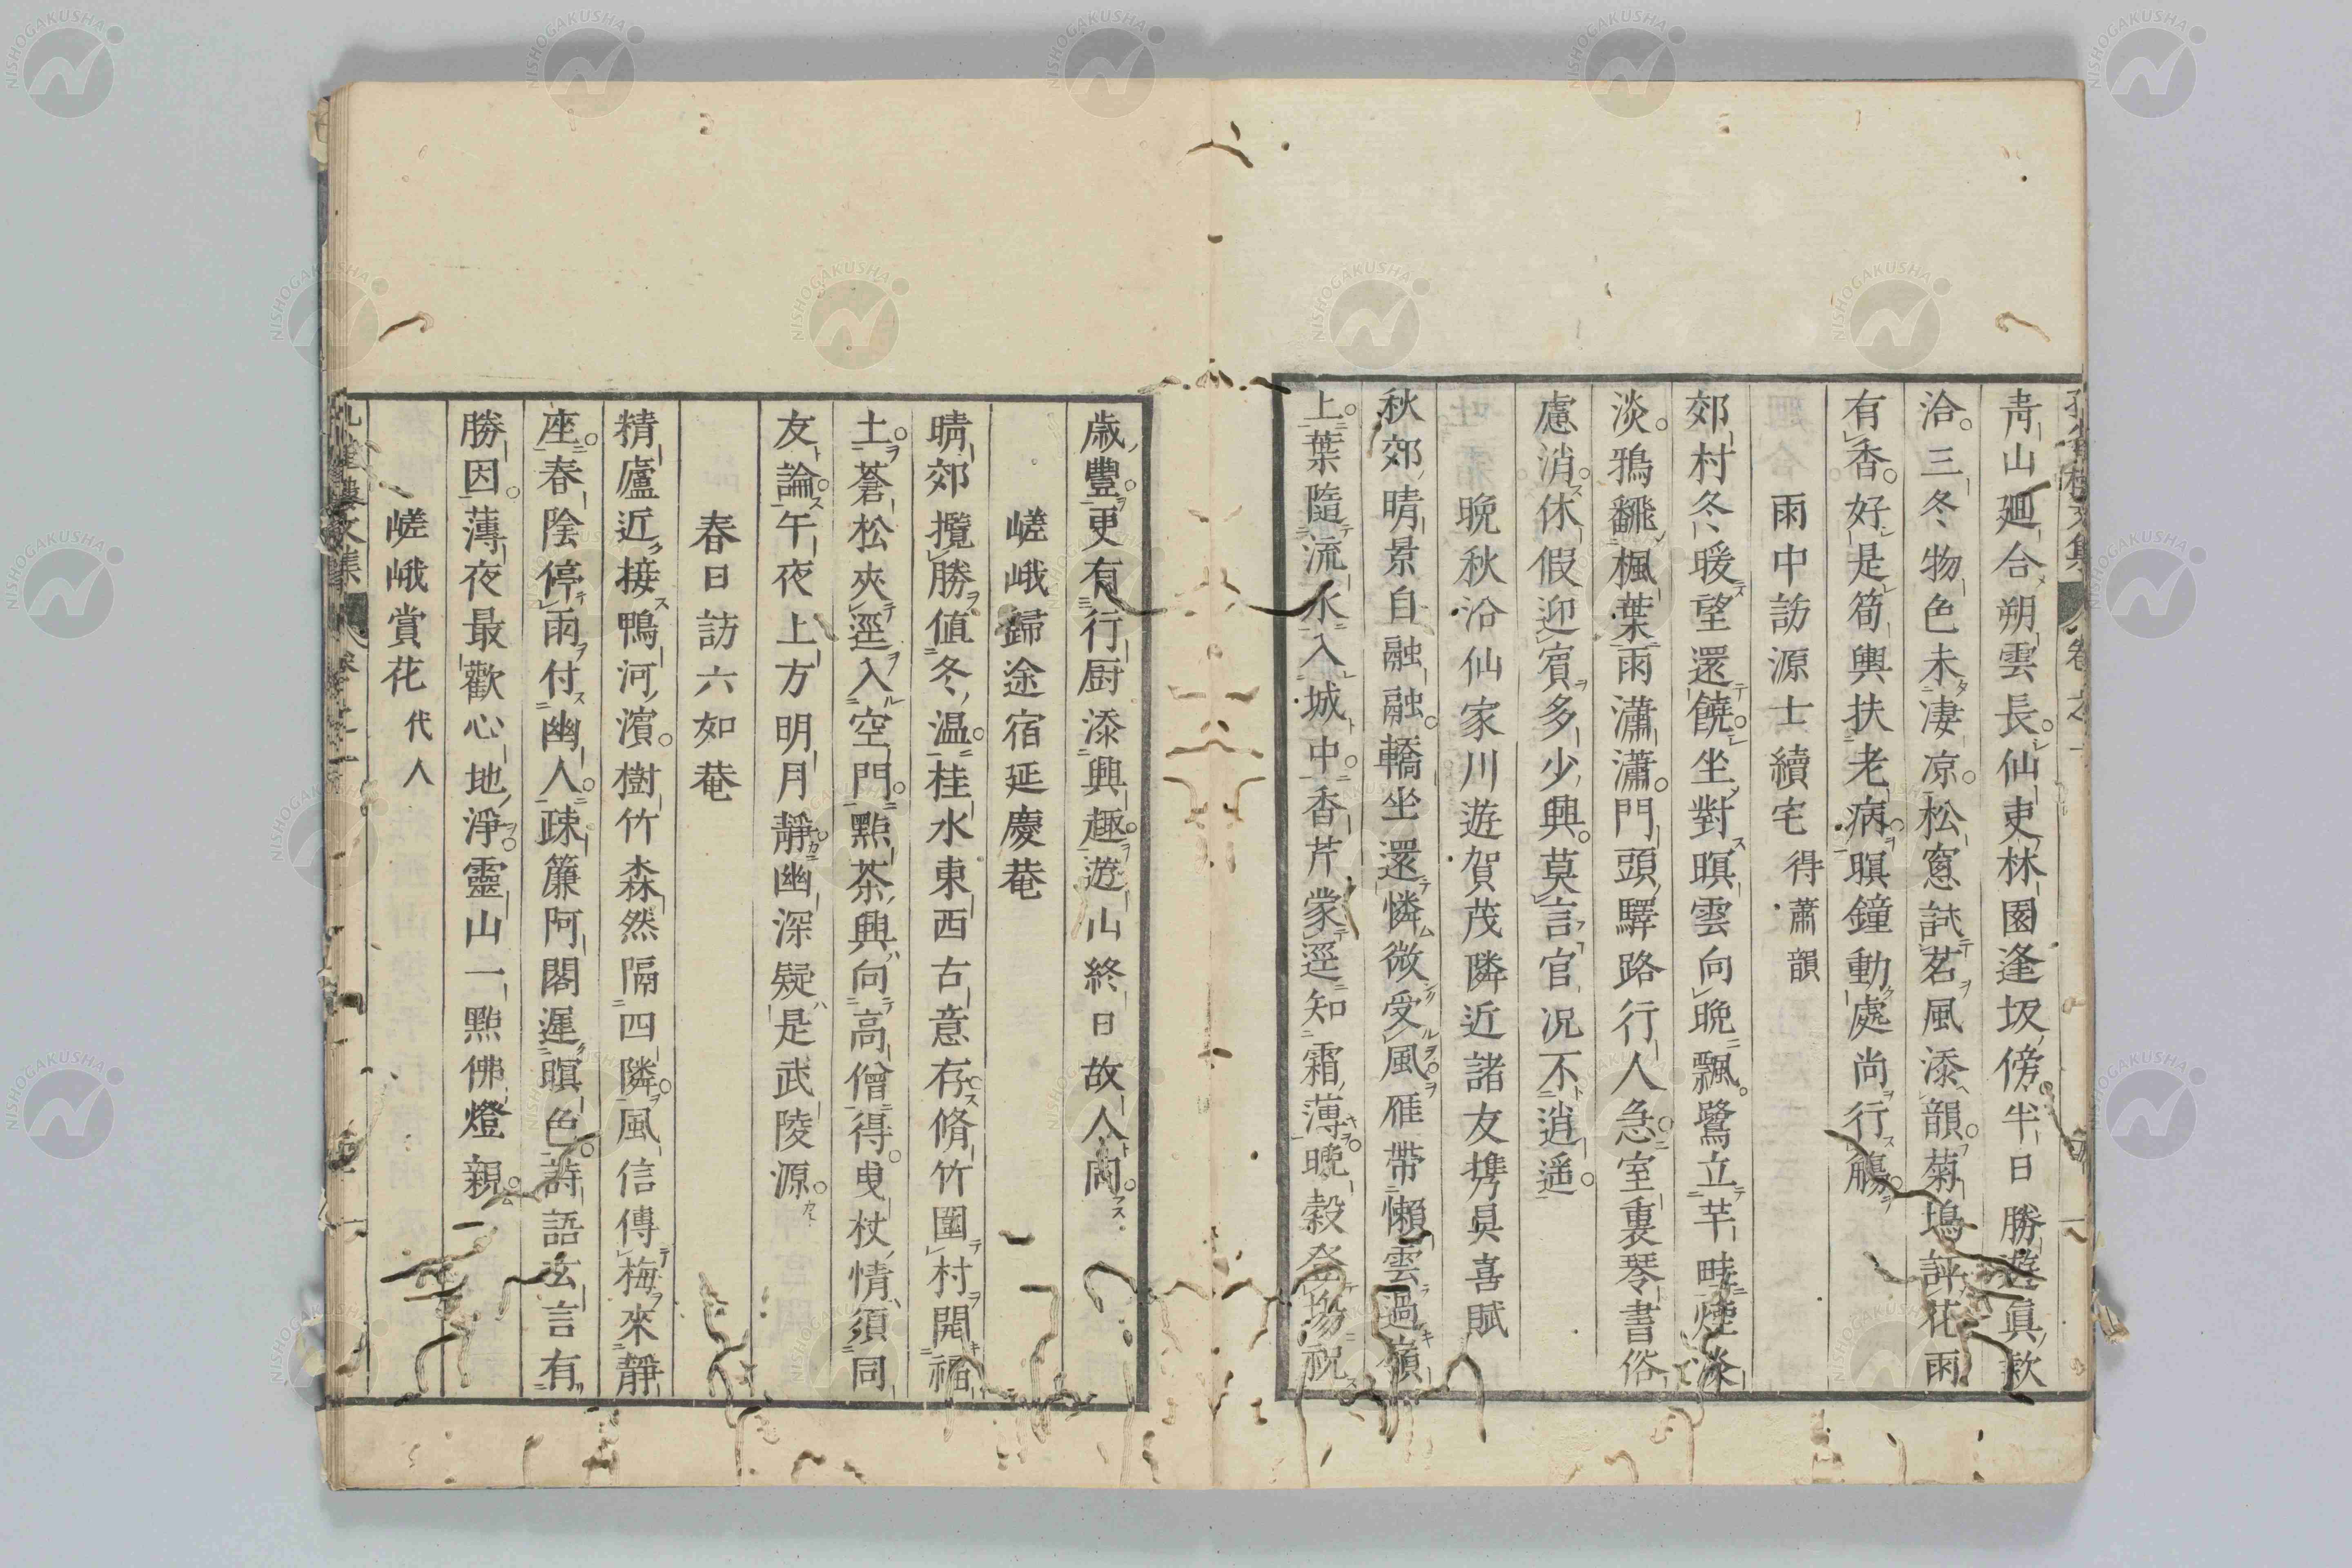 靑山廻合朔雲長仙吏林園逢坂傍半日勝遊眞歎
洽三冬物色未凄凉松窓試茗風添韻菊塢評花雨
有香好是筍輿扶老病暝鐘動處尚行觴
雨中訪源士續宅得蕭韻
郊村冬暖望還饒坐對暝雲向晩飄鷺立芊畦煙淡
淡鴉翻楓葉雨瀟瀟門頭驛路行人急室裏琴書俗
慮消休假迎賓多少興莫言官况不逍遥
晩秋沿仙家川遊賀茂隣近諸友携具喜賦
秋郊晴景自融融轎坐還憐微受風雁帶懶雲過嶺
上葉隨流水入城中香芹裳逕知霜薄晩穀登場祝
歳豐更有行厨添興趣遊山終日故人同
嵯峨歸途宿延慶菴
晴郊攬勝値冬温桂水東西古意存脩竹圍村開福
土蒼松夾逕入空門點茶興向高僧得曳杖情須同
友論午夜上方明月靜幽深疑是武陵源
春日訪六如菴
精廬近接鴨河濱樹竹森然隔四隣風信傳梅來靜
座春陰停雨付幽人疎簾阿閣遲暝色詩語玄言有
勝因薄夜最歡心地淨靈山一點佛燈親
嵯峨賞花代人
NISHOGAKUSHA